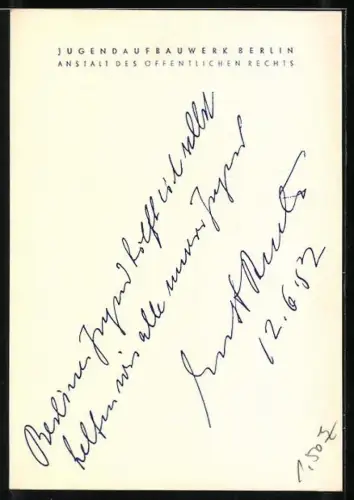 JUGENDAUFBAUWERK BERLIN
ANSTALT DES ÖFFENTLICHEN RECHTS
Berliner Jugend hilft sich selbst
helfen wir alle unserer Jugend
Ernst Reuter
12.6.52
1,50